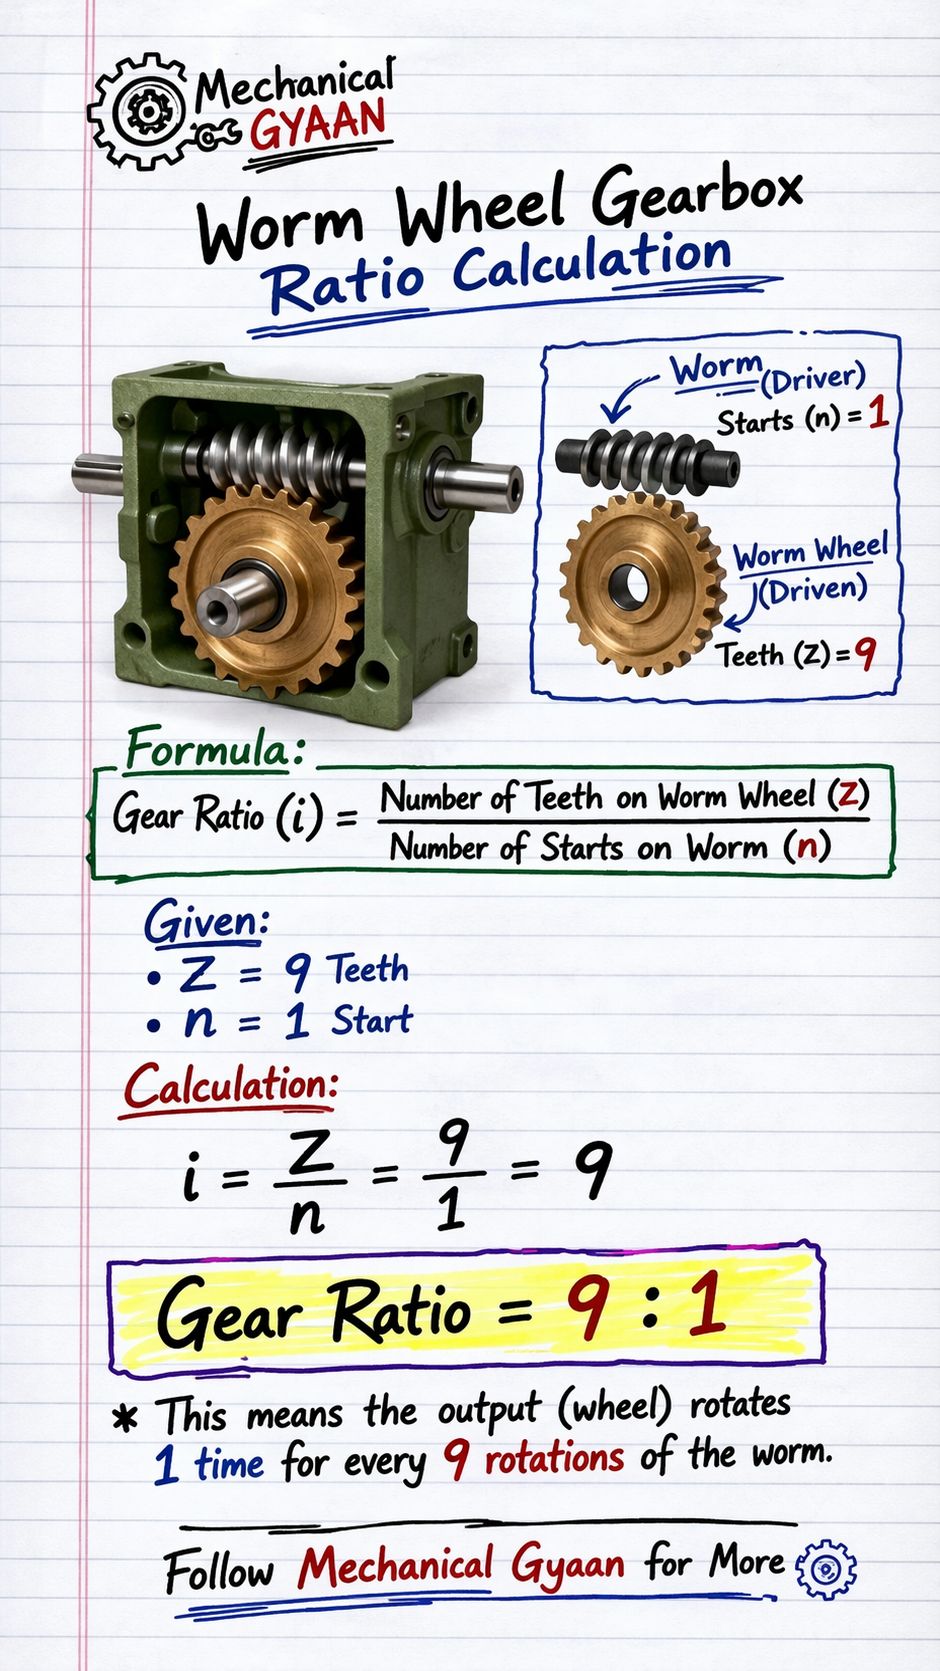 Mechanical
GYAAN
Worm Wheel Gearbox
Ratio Calculation
Worm (Driver)
Starts (n) = 1
Worm Wheel
(Driven)
Teeth (Z) = 9
Formula:
Gear Ratio (i) = Number of Teeth on Worm Wheel (Z)
Number of Starts on Worm (n)
Given:
• Z = 9 Teeth
• n = 1 Start
Calculation:
i = Z/n = 9/1 = 9
Gear Ratio = 9 : 1
* This means the output (wheel) rotates
1 time for every 9 rotations of the worm.
Follow Mechanical Gyaan for More